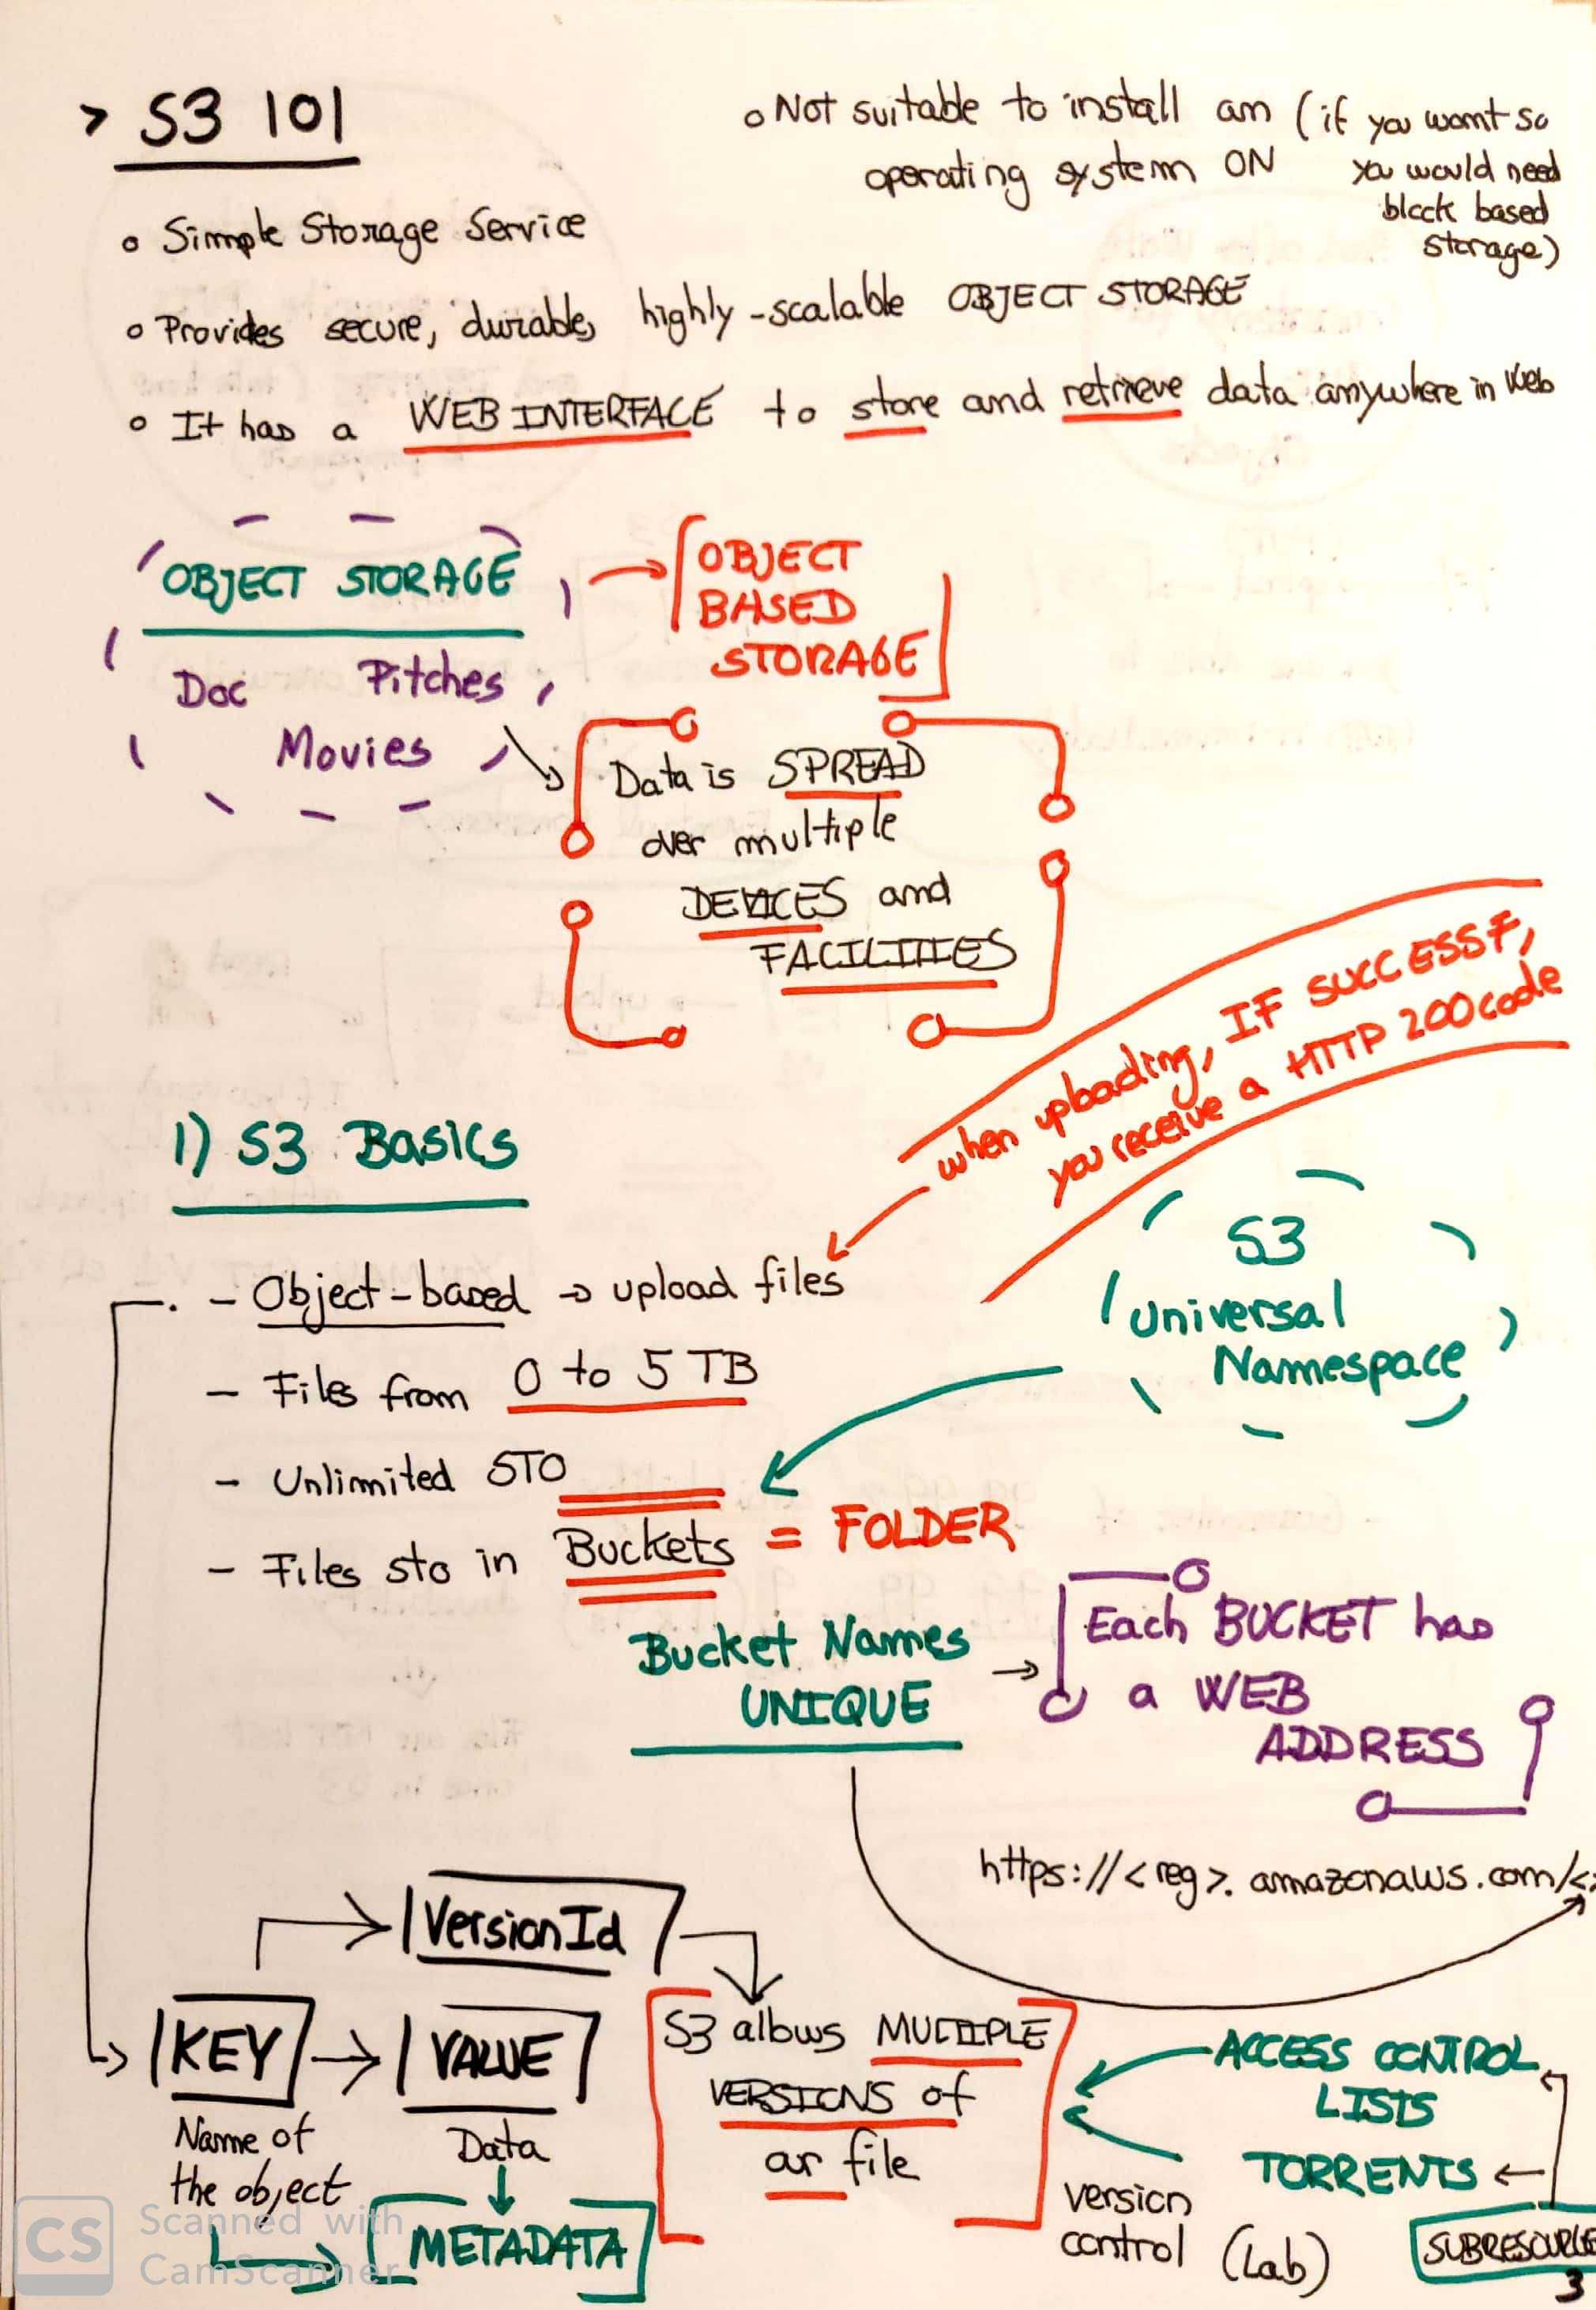 > S3 101
o Not suitable to install an
operating system ON
(if you want so
you would need
block based
storage)
o Simple Storage Service
o Provides secure, durable, highly-scalable OBJECT STORAGE
o It has a WEB INTERFACE to store and retrieve data anywhere in Web
OBJECT STORAGE
Doc Pitches
Movies
OBJECT
BASED
STORAGE
Data is SPREAD
over multiple
DEVICES and
FACILITIES
when uploading, IF SUCCESSF,
you receive a HTTP 200 code
1) S3 Basics
- Object-based → upload files
- Files from 0 to 5 TB
- Unlimited STO
- Files sto in Buckets = FOLDER
S3
Universal
Namespace
Bucket Names
UNIQUE
→ Each BUCKET has
a WEB
ADDRESS
https://<reg>.amazonaws.com/<
VersionId
KEY → VALUE
Name of
the object
Data
METADATA
S3 allows MULTIPLE
VERSIONS of
ar file
ACCESS CONTROL
LISTS
TORRENTS ←
version
control (Lab)
SUBRESOURCE
3
CS
Scanned with
CamScanner